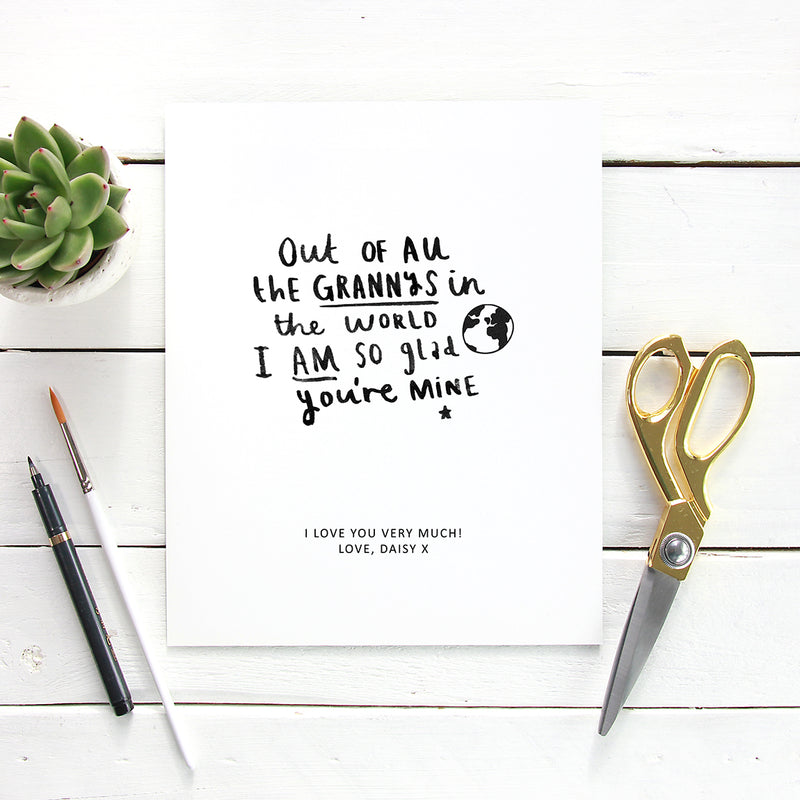 Out OF ALL
the GRANNYS in
the WORLD
I AM SO glad
you're MINE
I LOVE YOU VERY MUCH!
LOVE, DAISY X